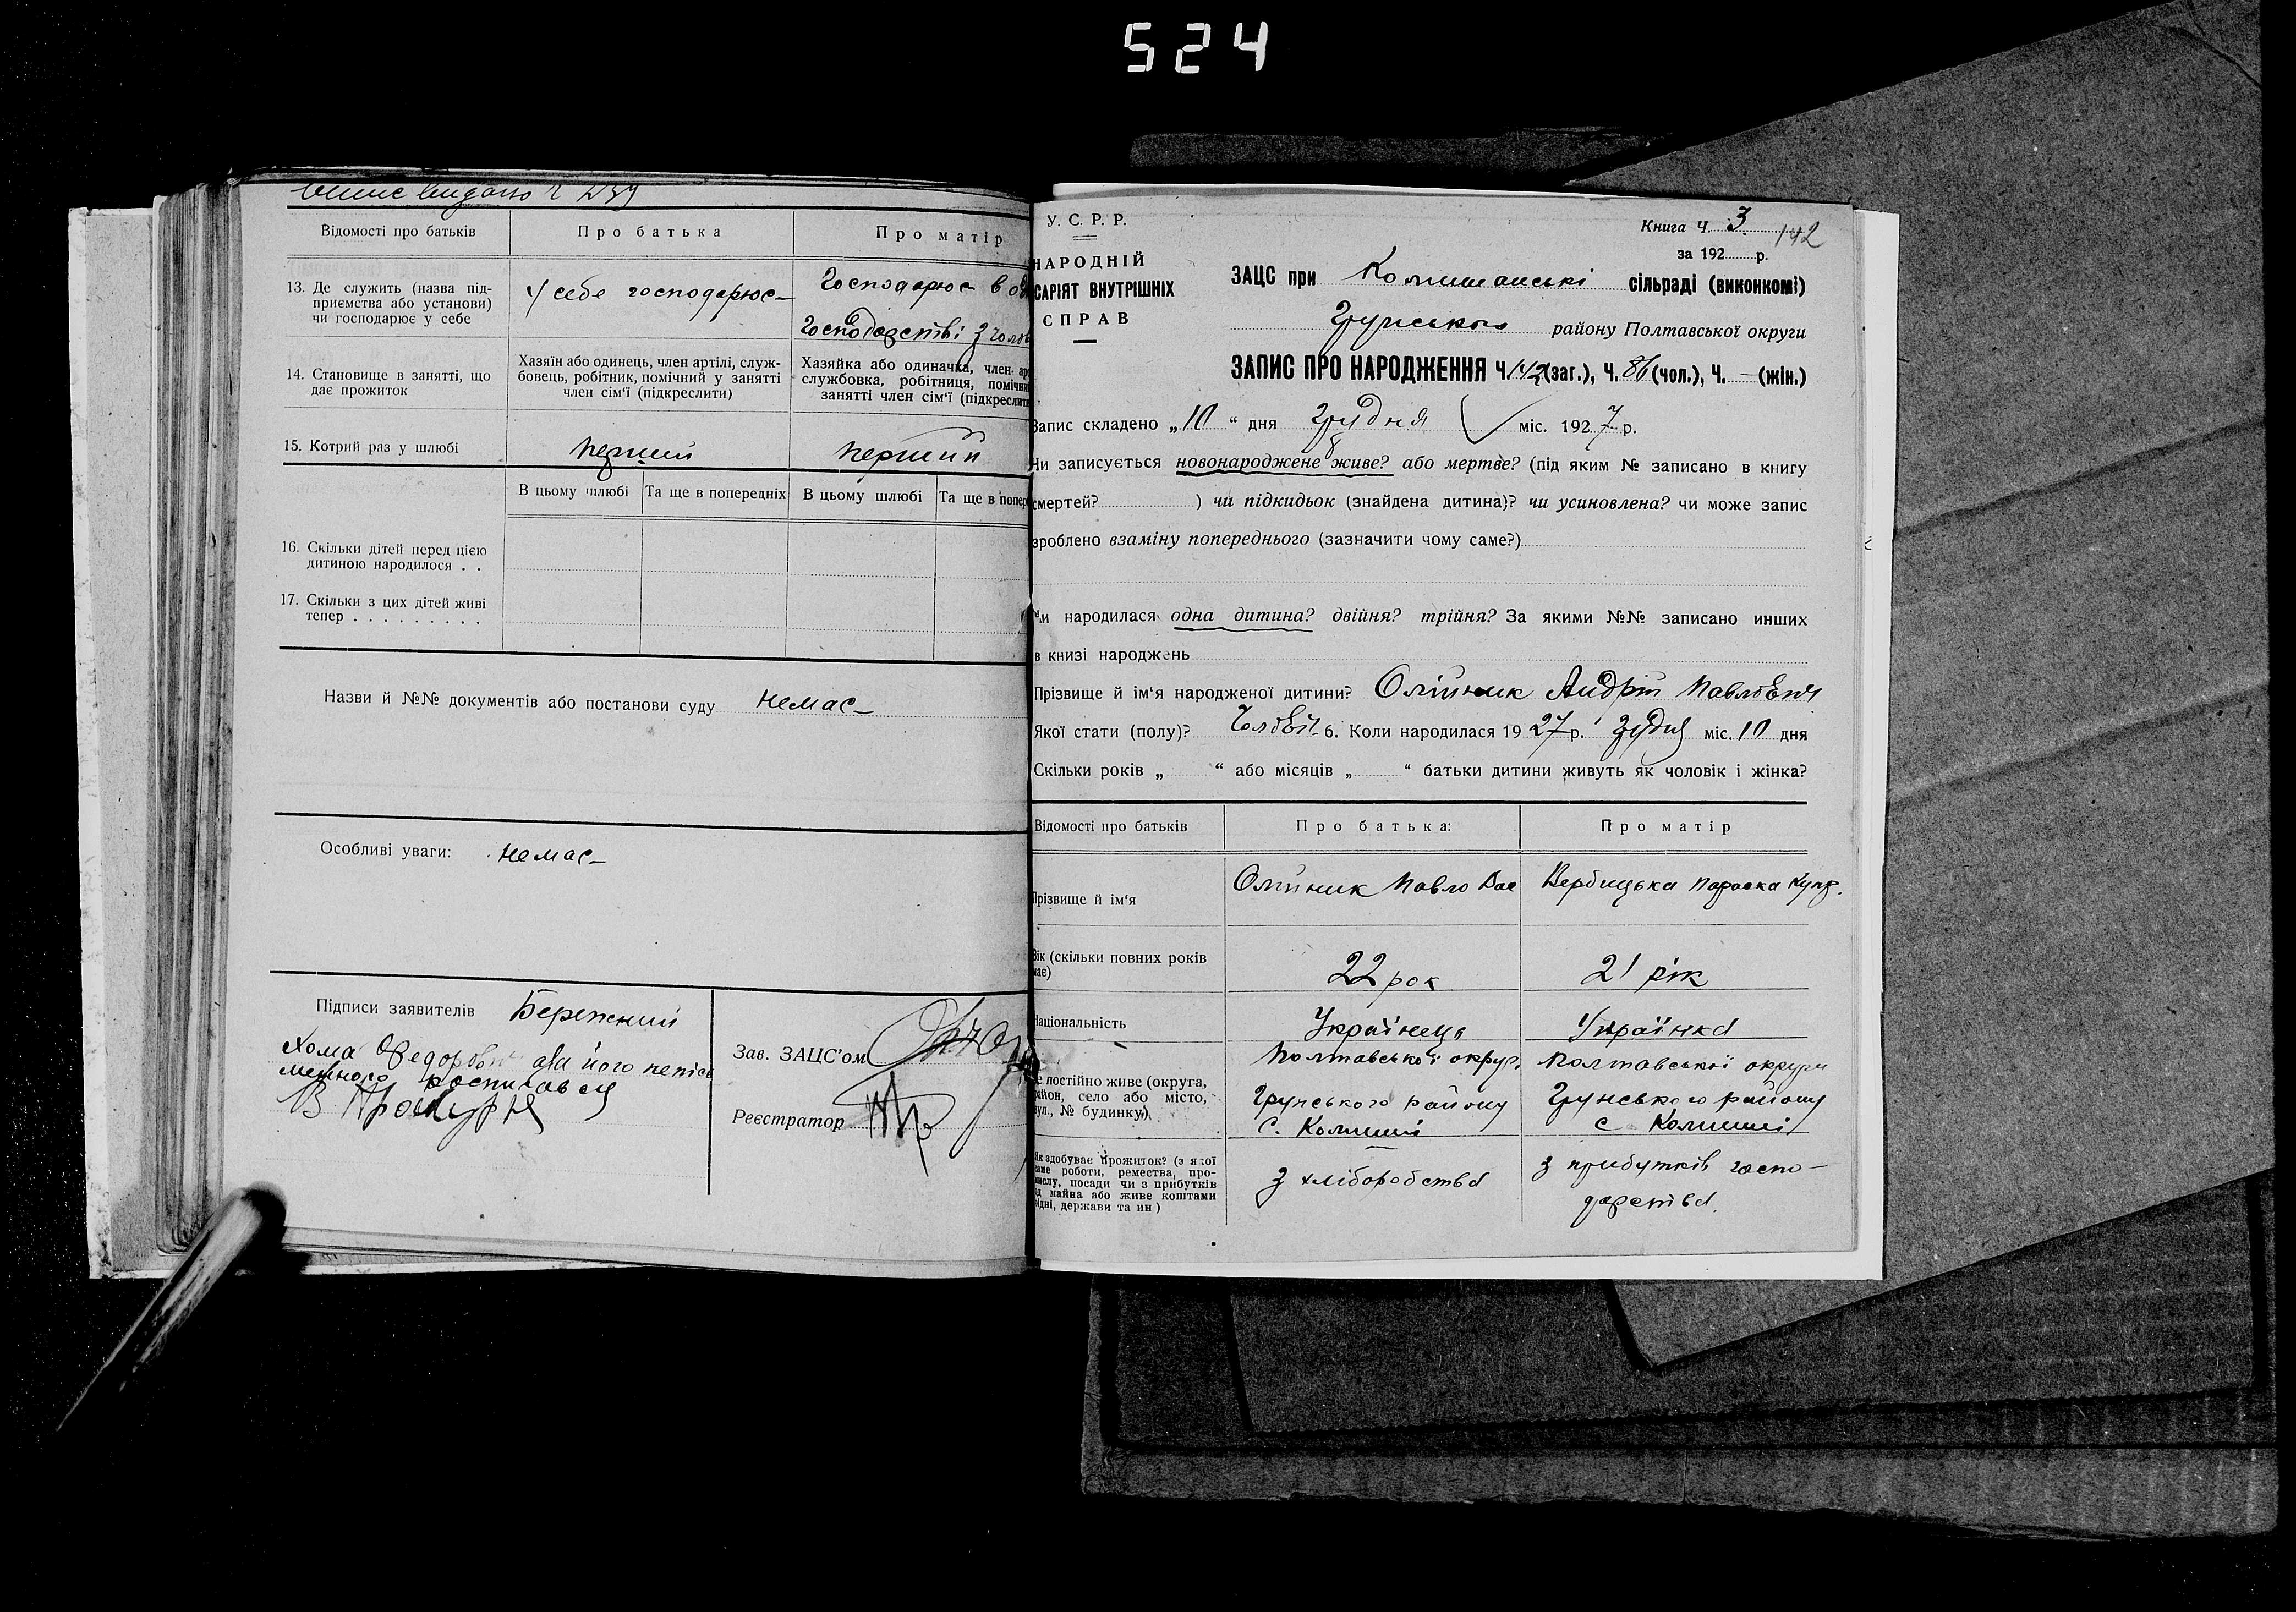 524
Відомості про батьків
Про батька
Про матір
13. Де служить (назва під-
приємства або установи)
чи господарює у себе
У себе господарює
Господарює в
Господарстві з
14. Становище в занятті, що
дає прожиток
Хазяїн або одинець, член артілі, служ-
бовець, робітник, помічний у занятті
член сім'ї (підкреслити)
Хазяйка або одиначка, член ар
службовка, робітниця, помічни
занятті член сім'ї (підкреслити
15. Котрий раз у шлюбі
перший
перший
В цьому шлюбі
Та ще в попередніх
В цьому шлюбі
Та ще в попер
16. Скільки дітей перед цією
дитиною народилося . .
17. Скільки з цих дітей живі
тепер . . . . . . . . .
Назви й №№ документів або постанови суду немає
Особливі уваги: немає
Підписи заявителів Бережний
Хома Федорович а за його непись
менного росписався
В Проскурня
Зав. ЗАЦС'ом
Реєстратор
У. С. Р. Р.
НАРОДНІЙ
САРІЯТ ВНУТРІШНІХ
СПРАВ
Книга Ч. 3
142
за 192 р.
ЗАЦС при Комишанські сільраді (виконкомі)
Грунського району Полтавської округи
ЗАПИС ПРО НАРОДЖЕННЯ Ч. 142 (заг.), Ч. 86 (чол.), Ч. — (жін.)
Запис складено „10“ дня Грудня міс. 1927 р.
Чи записується новонароджене живе? або мертве? (під яким № записано в книгу
смертей? ) чи підкидьок (знайдена дитина)? чи усиновлена? чи може запис
зроблено взаміну попереднього (зазначити чому саме?)
Чи народилася одна дитина? двійня? трійня? За якими №№ записано инших
в книзі народжень
Прізвище й ім'я народженої дитини? Олійник Андрій Павлович
Якої стати (полу)? Чоловіч 6. Коли народилася 1927 р. грудня міс. 10 дня
Скільки років „ “ або місяців „ “ батьки дитини живуть як чоловік і жінка?
Відомості про батьків
Про батька:
Про матір
Прізвище й ім'я
Олійник Павло Вас
Вербицька Параска Купр.
Вік (скільки повних років
має)
22 рок
21 рік
Національність
Українець
Українка
Де постійно живе (округа,
район, село або місто,
вул., № будинку)
Полтавської округ.
Грунського району
с. Комиші
Полтавської округи
Грунського району
с Комиші
Як здобуває прожиток? (з якої
саме роботи, ремества, про-
мислу, посади чи з прибутків
од майна або живе коштами
рідні, держави та ин)
З хліборобства
З прибутків госпо-
дарства.